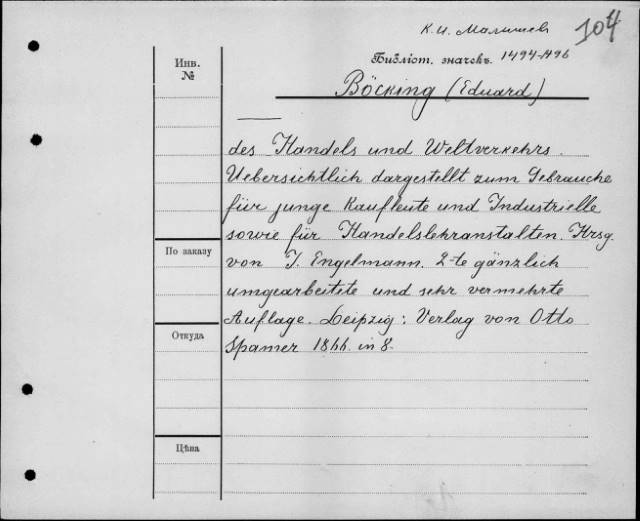 К. И. Малышев
104
Инв.
№
Библіот. значекъ. 1494-1496
Böcking (Eduard)
des Handels und Weltverkehrs.
Uebersichtlich dargestellt zum Gebrauche
für junge Kaufleute und Industrielle
sowie für Handelslehranstalten. Hrsg.
По заказу
von I. Engelmann. 2-te gänzlich
umgearbeitete und sehr vermehrte
Auflage. Leipzig: Verlag von Otto
Откуда
Spamer 1866. in 8.
Цѣна